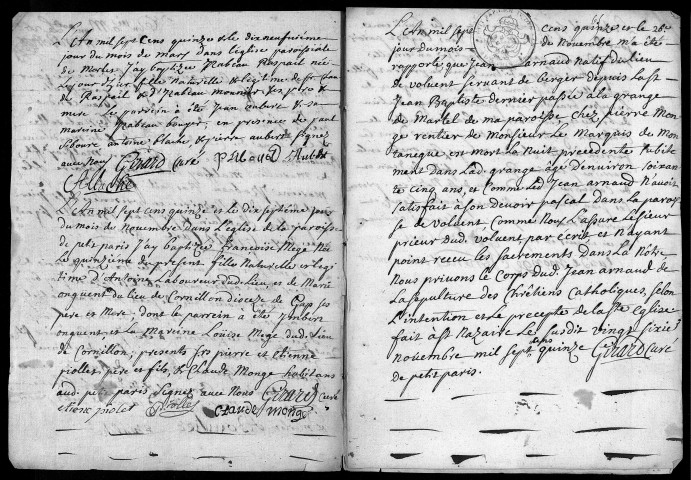 L'An mil sept cens quinze & le dixneufvieme
jour du mois de mars dans l'eglise paroissiale
de Morles J'ay baptizée Izabeau Raspail née
le jour fille Naturelle & legitime de
de Raspail & d'Izabeau monnier ses pere &
mere le parrein a été Jean aubert & sa
mareine Izabeau bouyer, en presences de paul
antoine blache & pierre aubert signez
avec Nous Girard curé P. Aubert
A Blache
L'An mil sept cens quinze et le dix septieme jour
du mois de Novembre dans L'eglise de la paroisse
de petit paris J'ay baptizée françoise Mege Née
Le quinzieme du present fille Naturelle et legi
time d'Antoine Laboureur dud. Lieu et de Marie
onguent du Lieu de Cornillon dioceze de Gap ses
pere et Mere, dont le parrein a été Imbert
onguent, et la Mareine Louise Mege dud. Lieu
de Cornillon, presents frs pierre et Etienne
piollet, pere et fils, & Claude Monge habitans
aud. petit paris Signez avec Nous Girard curé
etiene piolet Piollet Claude monge
L'An mil sept cens quinze et le 26e
jour du mois de Novembre m'a été
rapporté que Jean arnaud Natif du Lieu
de volvent servant de berger depuis La st
Jean Baptiste dernier passée a la grange
de Martel de ma paroisse chez pierre Mon
ge rentier de Monsieur Le Marquis de Mon
taneque en mort La Nuit precedente subite
ment dans Lad. grange âgé d'environ soixan
te cinq ans, et comme Led. Jean arnaud N'avoit
satisfait a son devoir pascal dans La parois
se de volvent comme Nous L'assure Le sieur
prieur dud. volvent par ecrit et N'ayant
point receu les sacrements dans La Nôtre
Nous privons le corps dud. Jean arnaud de
La sepulture des Chrêtiens Catholiques, selon
L'intention et Le precepte de La ste Eglise
fait a st Nazaire Le susdit vingt sixie
novembre mil sept cens quinze Girard curé
de petit paris.